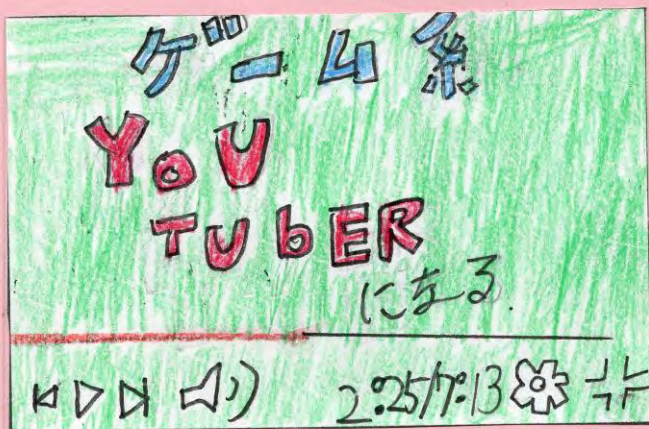 ゲーム系
YoU
TUbER
になる.
2:25/7:13